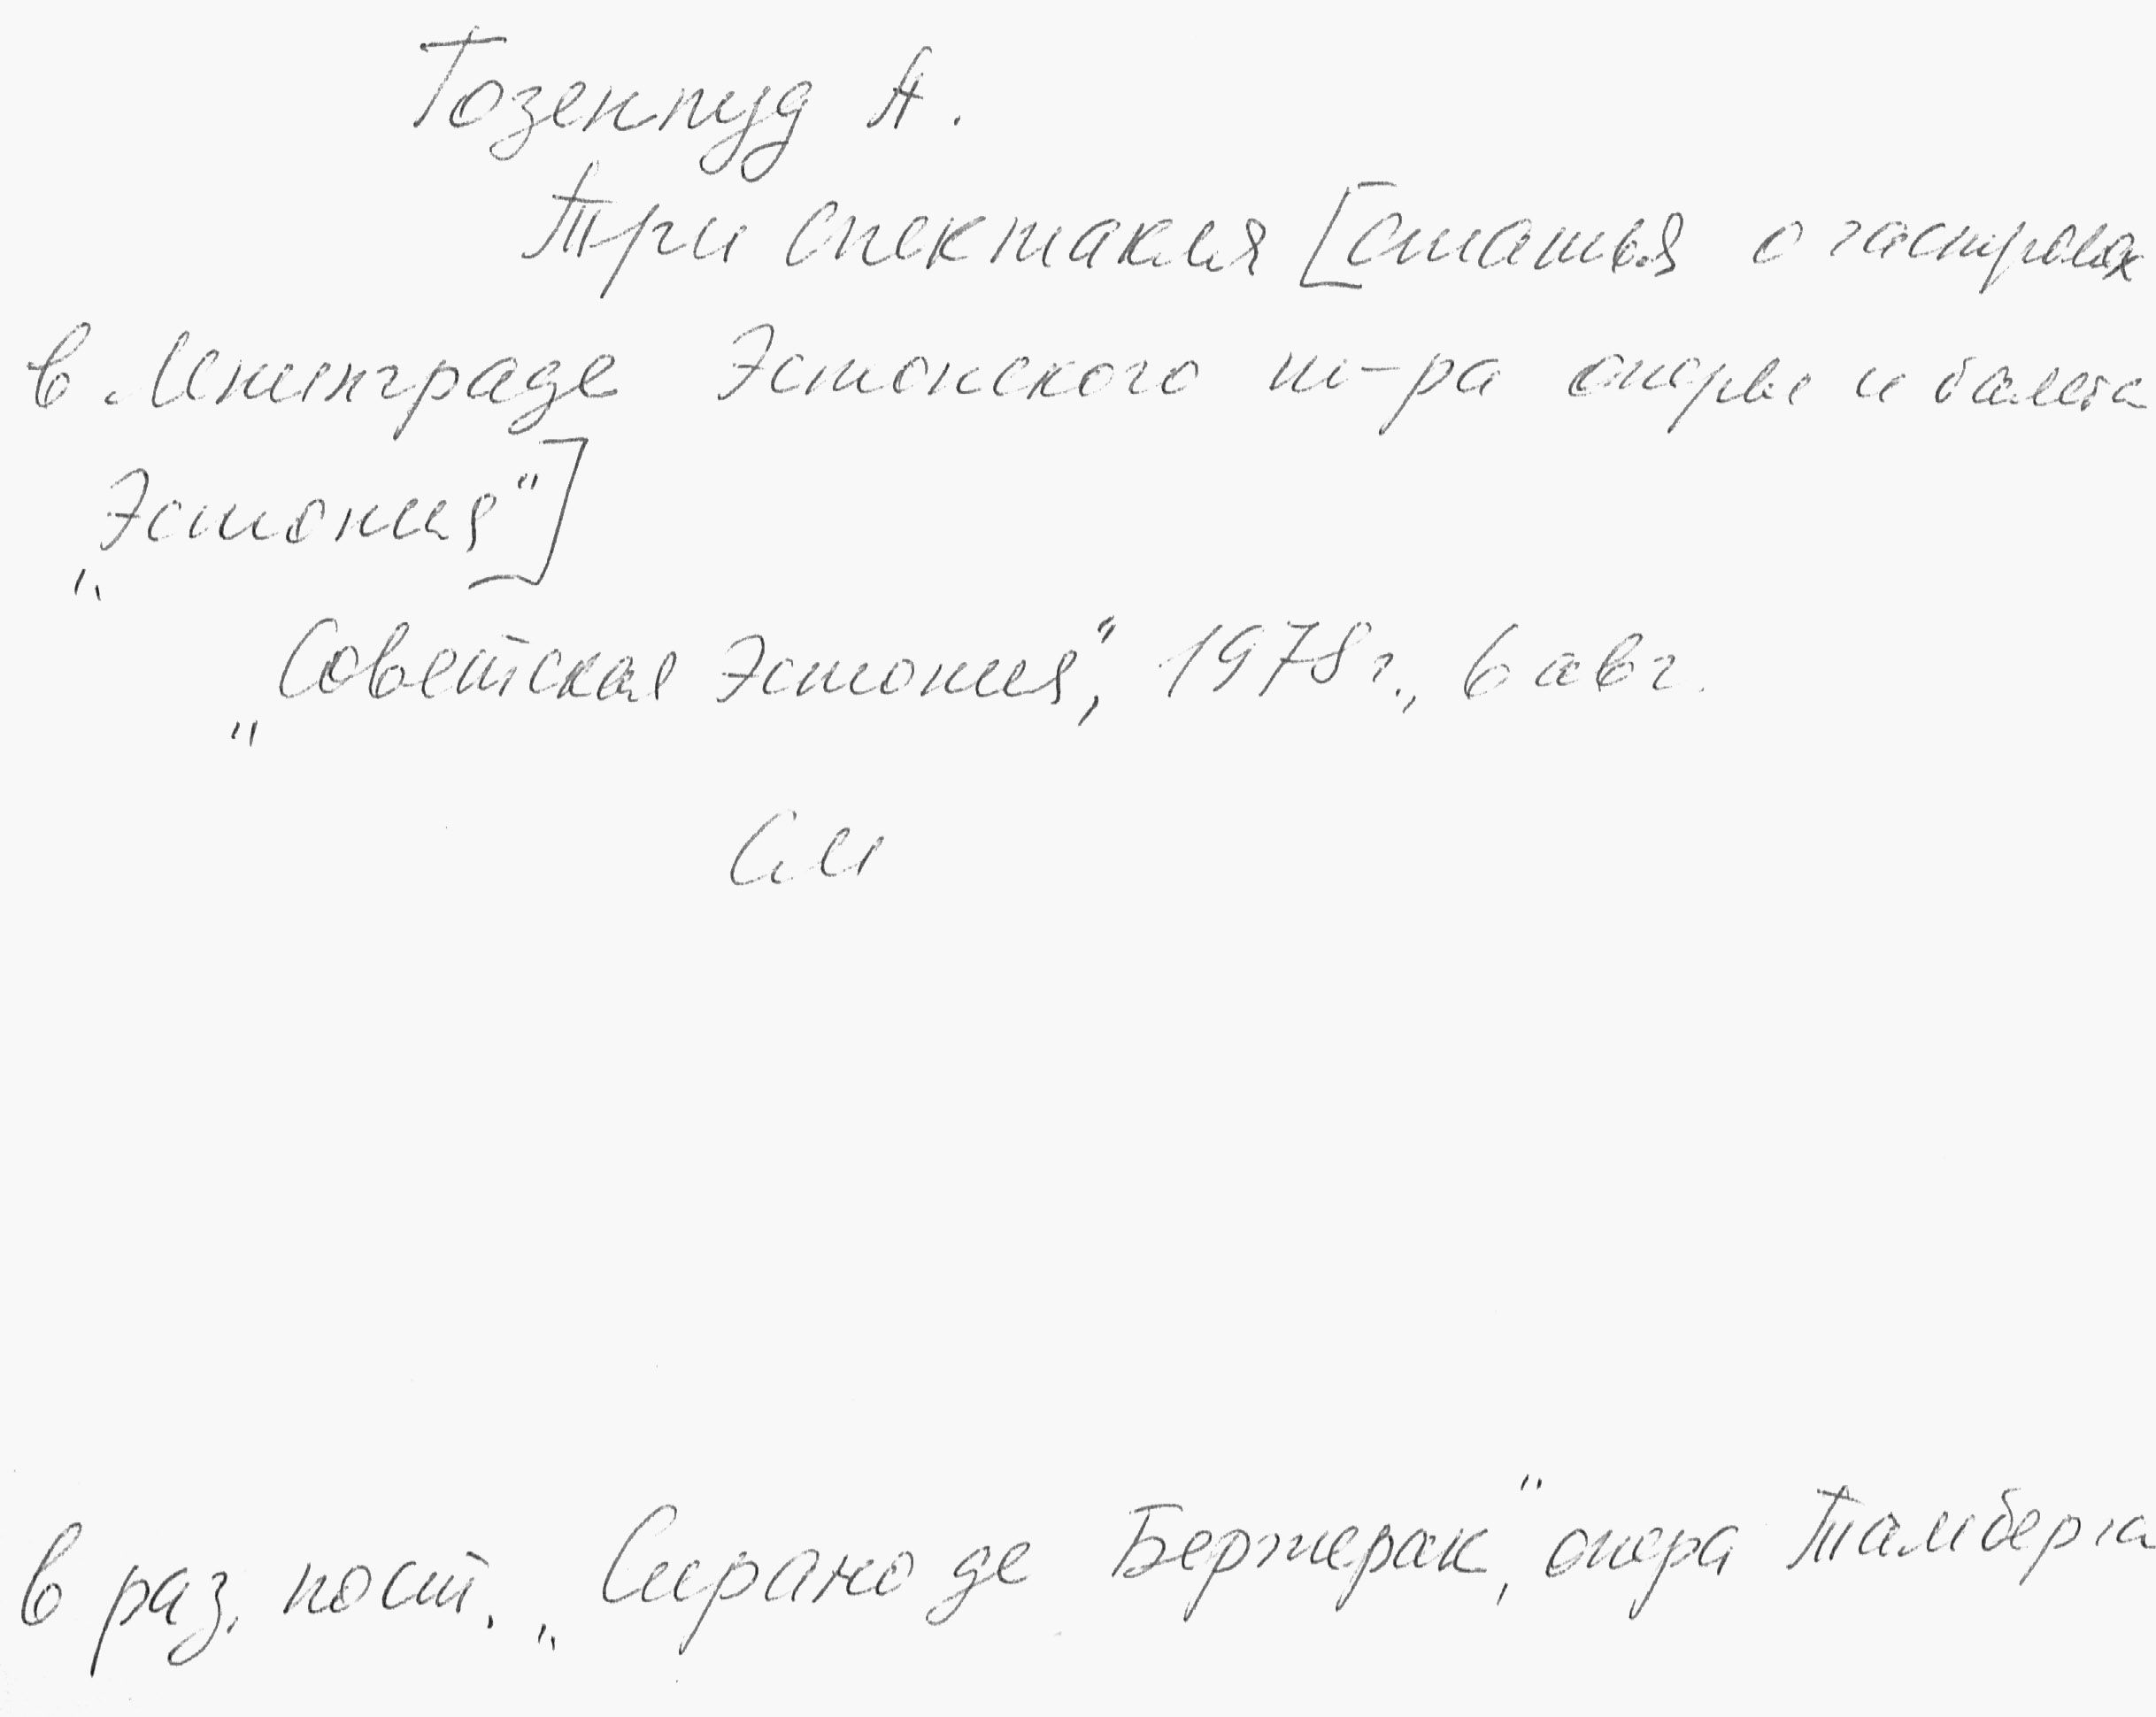 Гозенпуд А.
Три спектакля [статья о гастролях
в Ленинграде Эстонского т-ра оперы и балета
„Эстония"]
„Советская Эстония", 1978 г., 6 авг.
СМ
в раз. пост. „Сирано де Бержерак", опера Тамберга